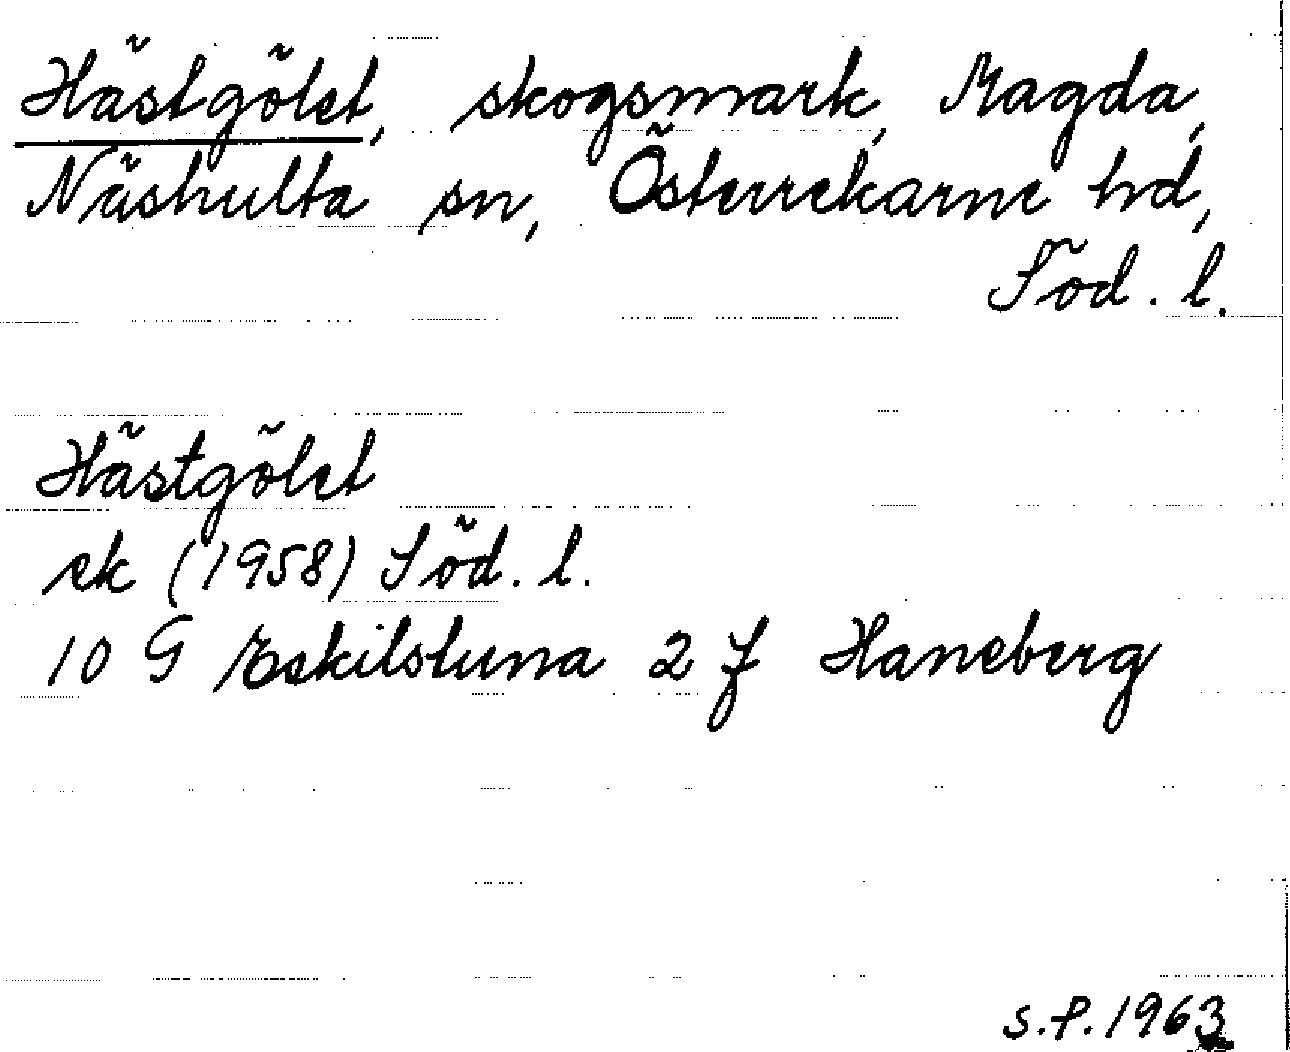 Hästgölet, skogsmark, Magda,
Näshulta sn, Österrekarne hd,
Söd. l.
Hästgölet
ek (1958) Söd. l.
10 G Eskilstuna 2 f Haneberg
S.P. 1963